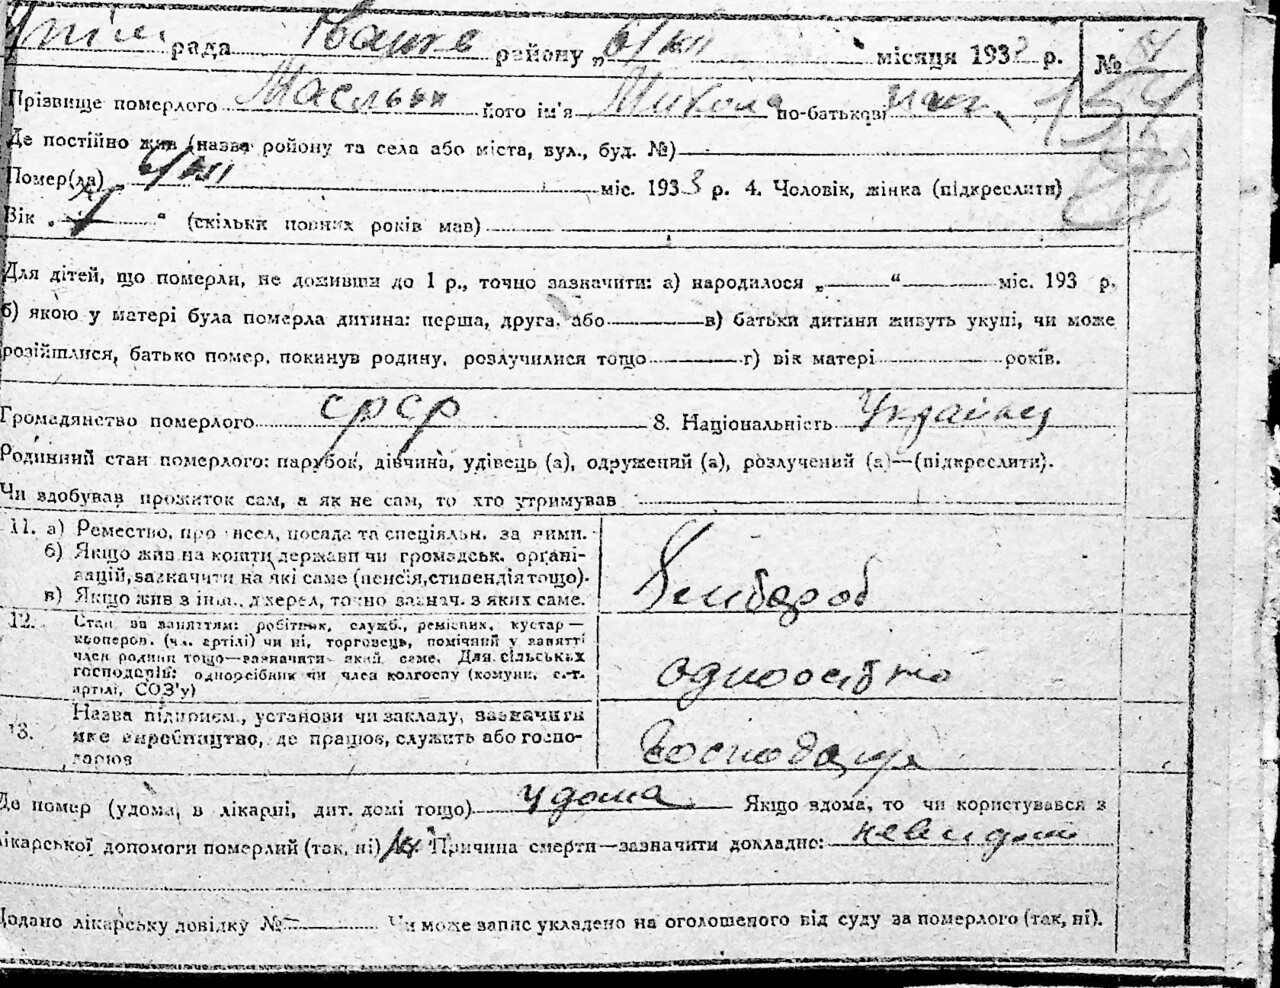 рада району „6/XII місяця 1933 р. №
Прізвище померлого його ім'я Микола по-батькові
Де постійно жив (назва ройону та села або міста, вул., буд. №)
Помер(ла) 6/XII міс. 1933 р. 4. Чоловік, жінка (підкреслити)
Вік „ “ (скільки повних років мав)
Для дітей, що померли, не доживши до 1 р., точно зазначити: а) народилося „ “ міс. 193 р.
б) якою у матері була померла дитина: перша, друга, або в) батьки дитини живуть укупі, чи може
розійшлися, батько помер, покинув родину, розлучилися тощо г) вік матері років.
Громадянство померлого СРСР 8. Національність Українец
Родинний стан померлого: парубок, дівчина, удівець (а), одружений (а), розлучений (а)—(підкреслити).
Чи здобував прожиток сам, а як не сам, то хто утримував
11. а) Ремество, професія, посада та спеціяльн. за ними.
б) Якщо жив на кошти держави чи громадськ. органі-
зацій, зазначити на які саме (пенсія, стипендія тощо).
в) Якщо жив з інш., джерел, точно зазнач. з яких саме.
Хлибороб
12. Стан за заняттям: робітник, служб., ремісник, кустар—
кооперов. (чл. артілі) чи ні, торговець, помічний у занятті
член родини тощо—зазначити який саме. Для сільських
господарів: одноосібник чи член колгоспу (комуни, с.-г.
артілі, СОЗ'у)
одноосібно
13. Назва підприєм., установи чи закладу, зазначити
яке виробництво, де працює, служить або госпо-
дарює
Господарув
Де помер (удома, в лікарні, дит. домі тощо) удома Якщо вдома, то чи користувався з
лікарської допомоги померлий (так, ні) Причина смерти—зазначити докладно: невидомо
Додано лікарську довідку № Чи може запис укладено на оголошеного від суду за померлого (так, ні).